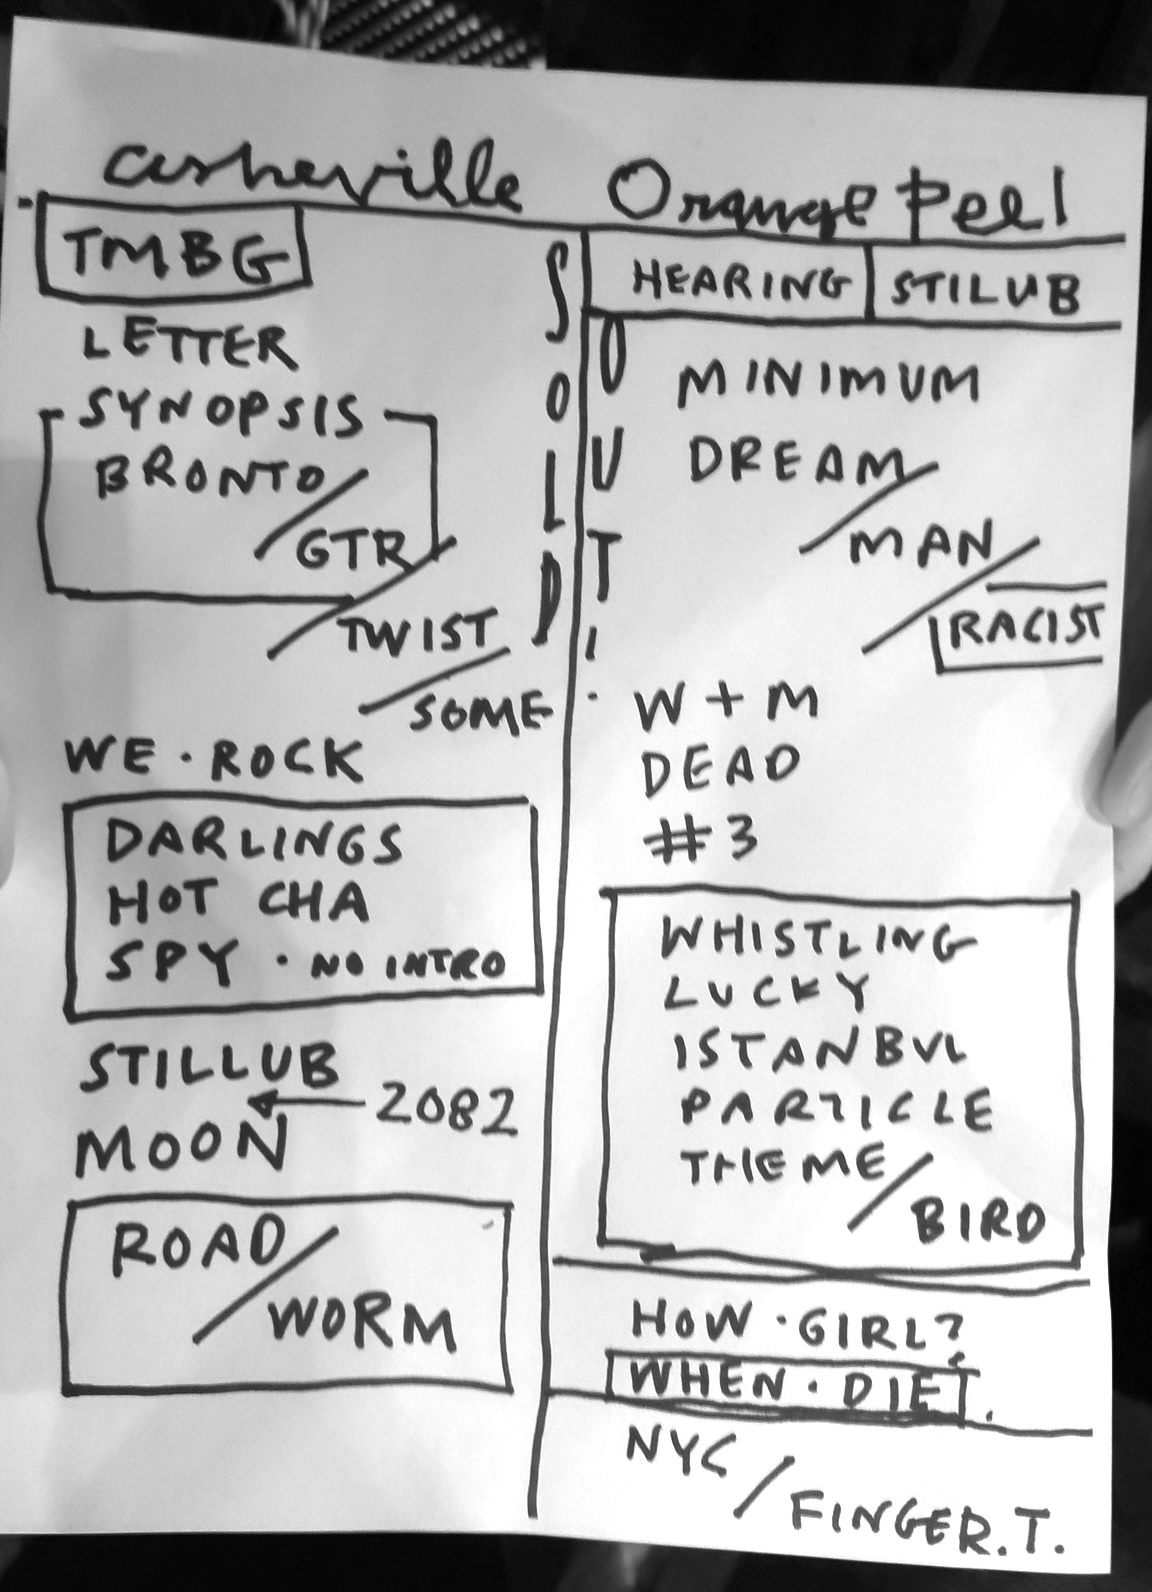 asheville Orange Peel
TMBG
LETTER
SYNOPSIS
BRONTO
/ GTR
/ TWIST
/ SOME
WE · ROCK
DARLINGS
HOT CHA
SPY · NO INTRO
STILLUB
← 2082
MOON
ROAD
/ WORM
SOLD
OUT!
HEARING | STILUB
MINIMUM
DREAM
/ MAN
/ RACIST
W + M
DEAD
#3
WHISTLING
LUCKY
ISTANBUL
PARTICLE
THEME
/ BIRD
HOW · GIRL?
WHEN · DIE?
NYC
/ FINGER.T.